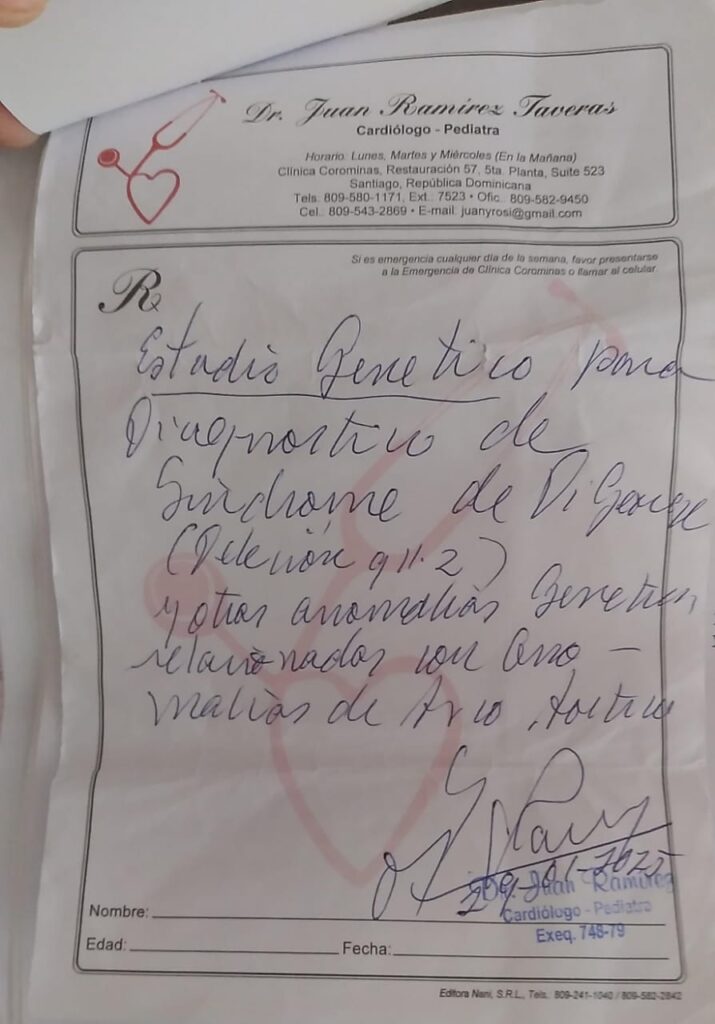 Dr. Juan Ramírez Taveras
Cardiólogo - Pediatra
Horario: Lunes, Martes y Miércoles (En la Mañana)
Clínica Corominas, Restauración 57, 5ta. Planta, Suite 523
Santiago, República Dominicana
Tels. 809-580-1171, Ext.. 7523 • Ofic.. 809-582-9450
Cel.. 809-543-2869 • E-mail: juanyrosi@gmail.com
Si es emergencia cualquier día de la semana, favor presentarse
a la Emergencia de Clínica Corominas o llamar al celular.
Rx
Estudio Genetico para
Diagnostico de
Sindrome de DiGeorge
(Delecion q11.2)
y otras anomalias Geneticas
relacionadas con Ano-
malias de Arco Aortico
29-01-2025
Dr. Juan Ramírez
Cardiólogo - Pediatra
Exeq. 748-79
Nombre:
Edad: Fecha:
Editora Nani, S.R.L., Tels. 809-241-1040 / 809-582-2842